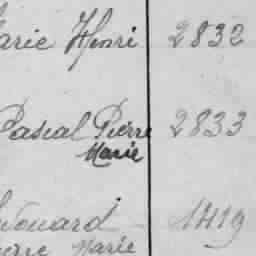 arie Henri 2832
Pascal Pierre 2833
Marie
douard 1419
erre Marie